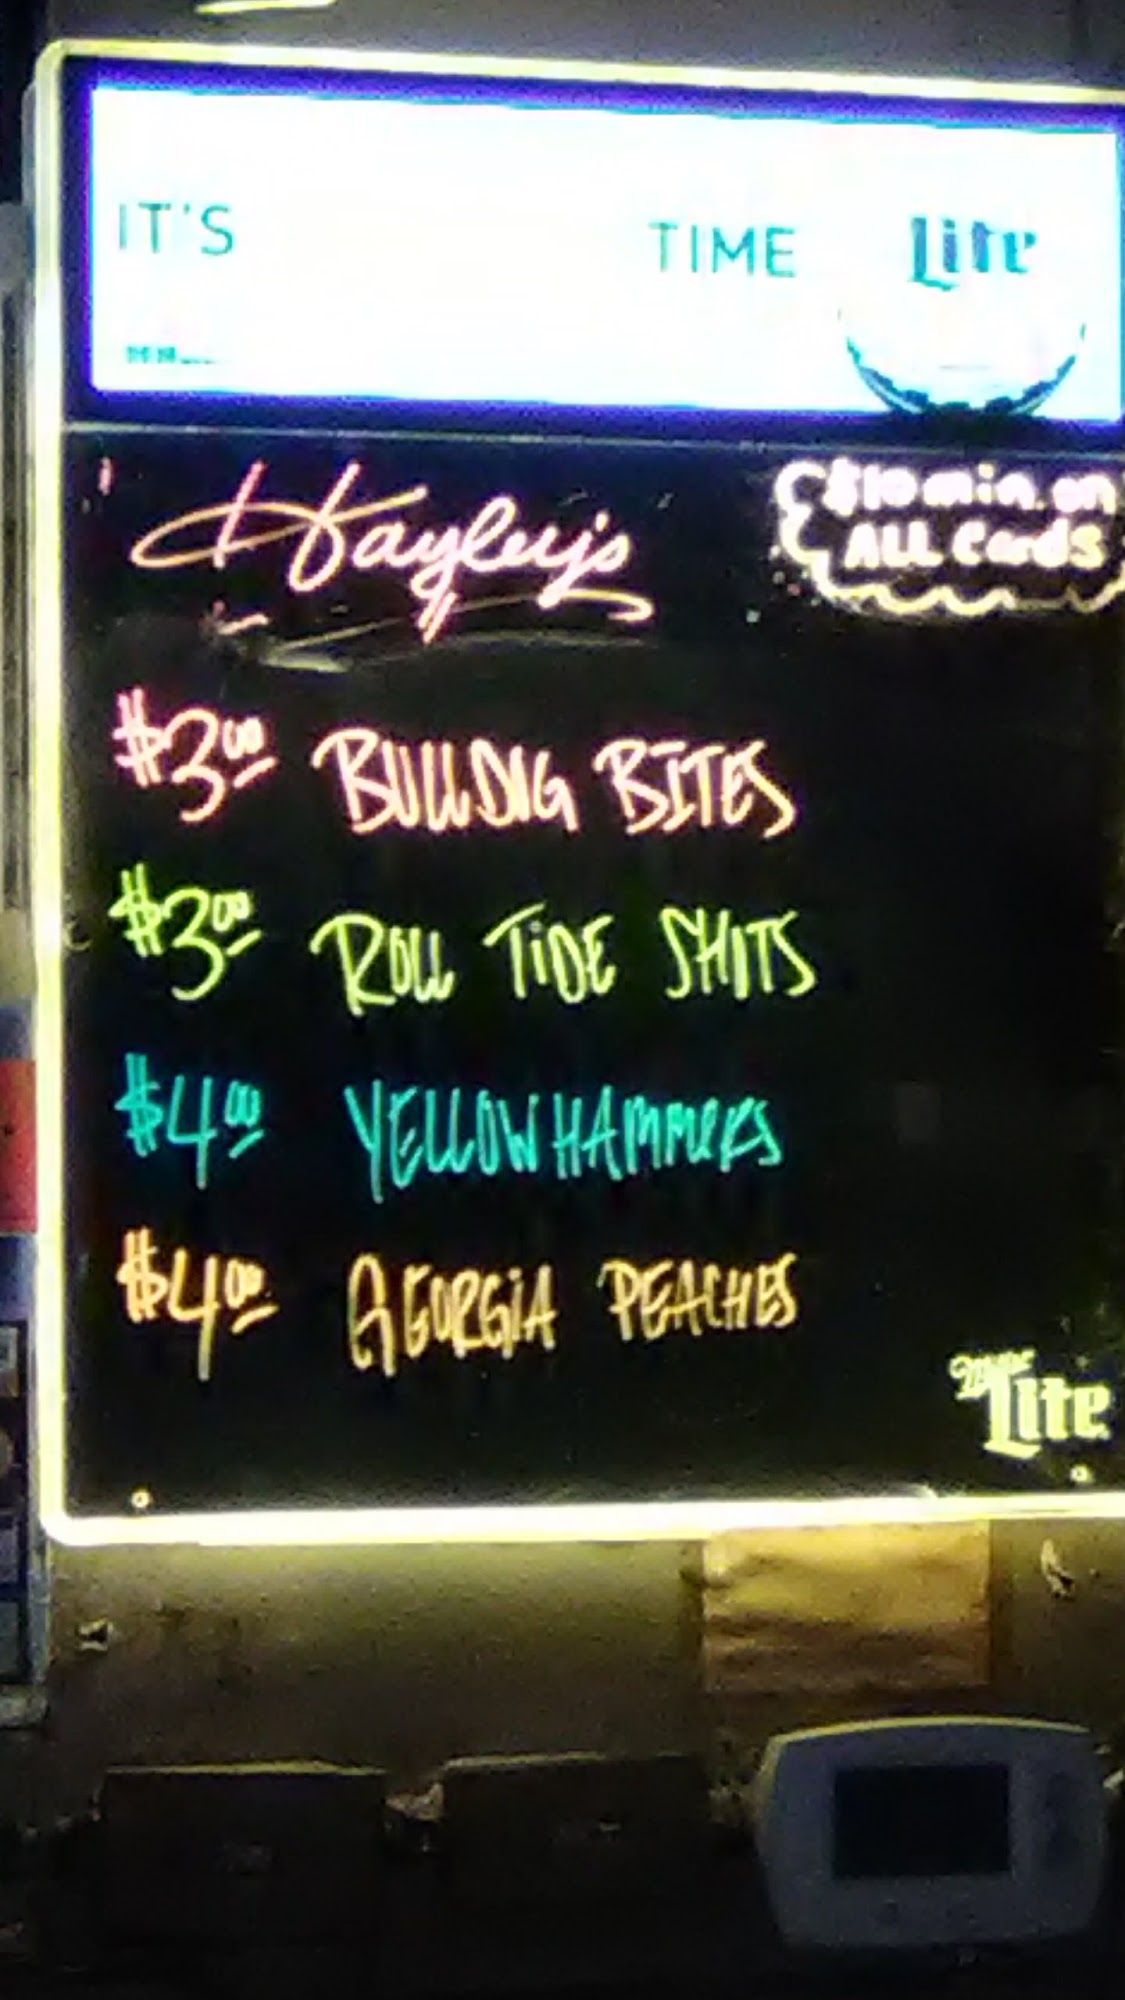 IT'S TIME Lite
Hayley's
$10 min. on
ALL Cards
$3.00 BULLDOG BITES
$3.00 ROLL TiDE SHOTS
$4.00 YELLOWHAMMERS
$4.00 GEORGiA PEACHES
Miller
Lite